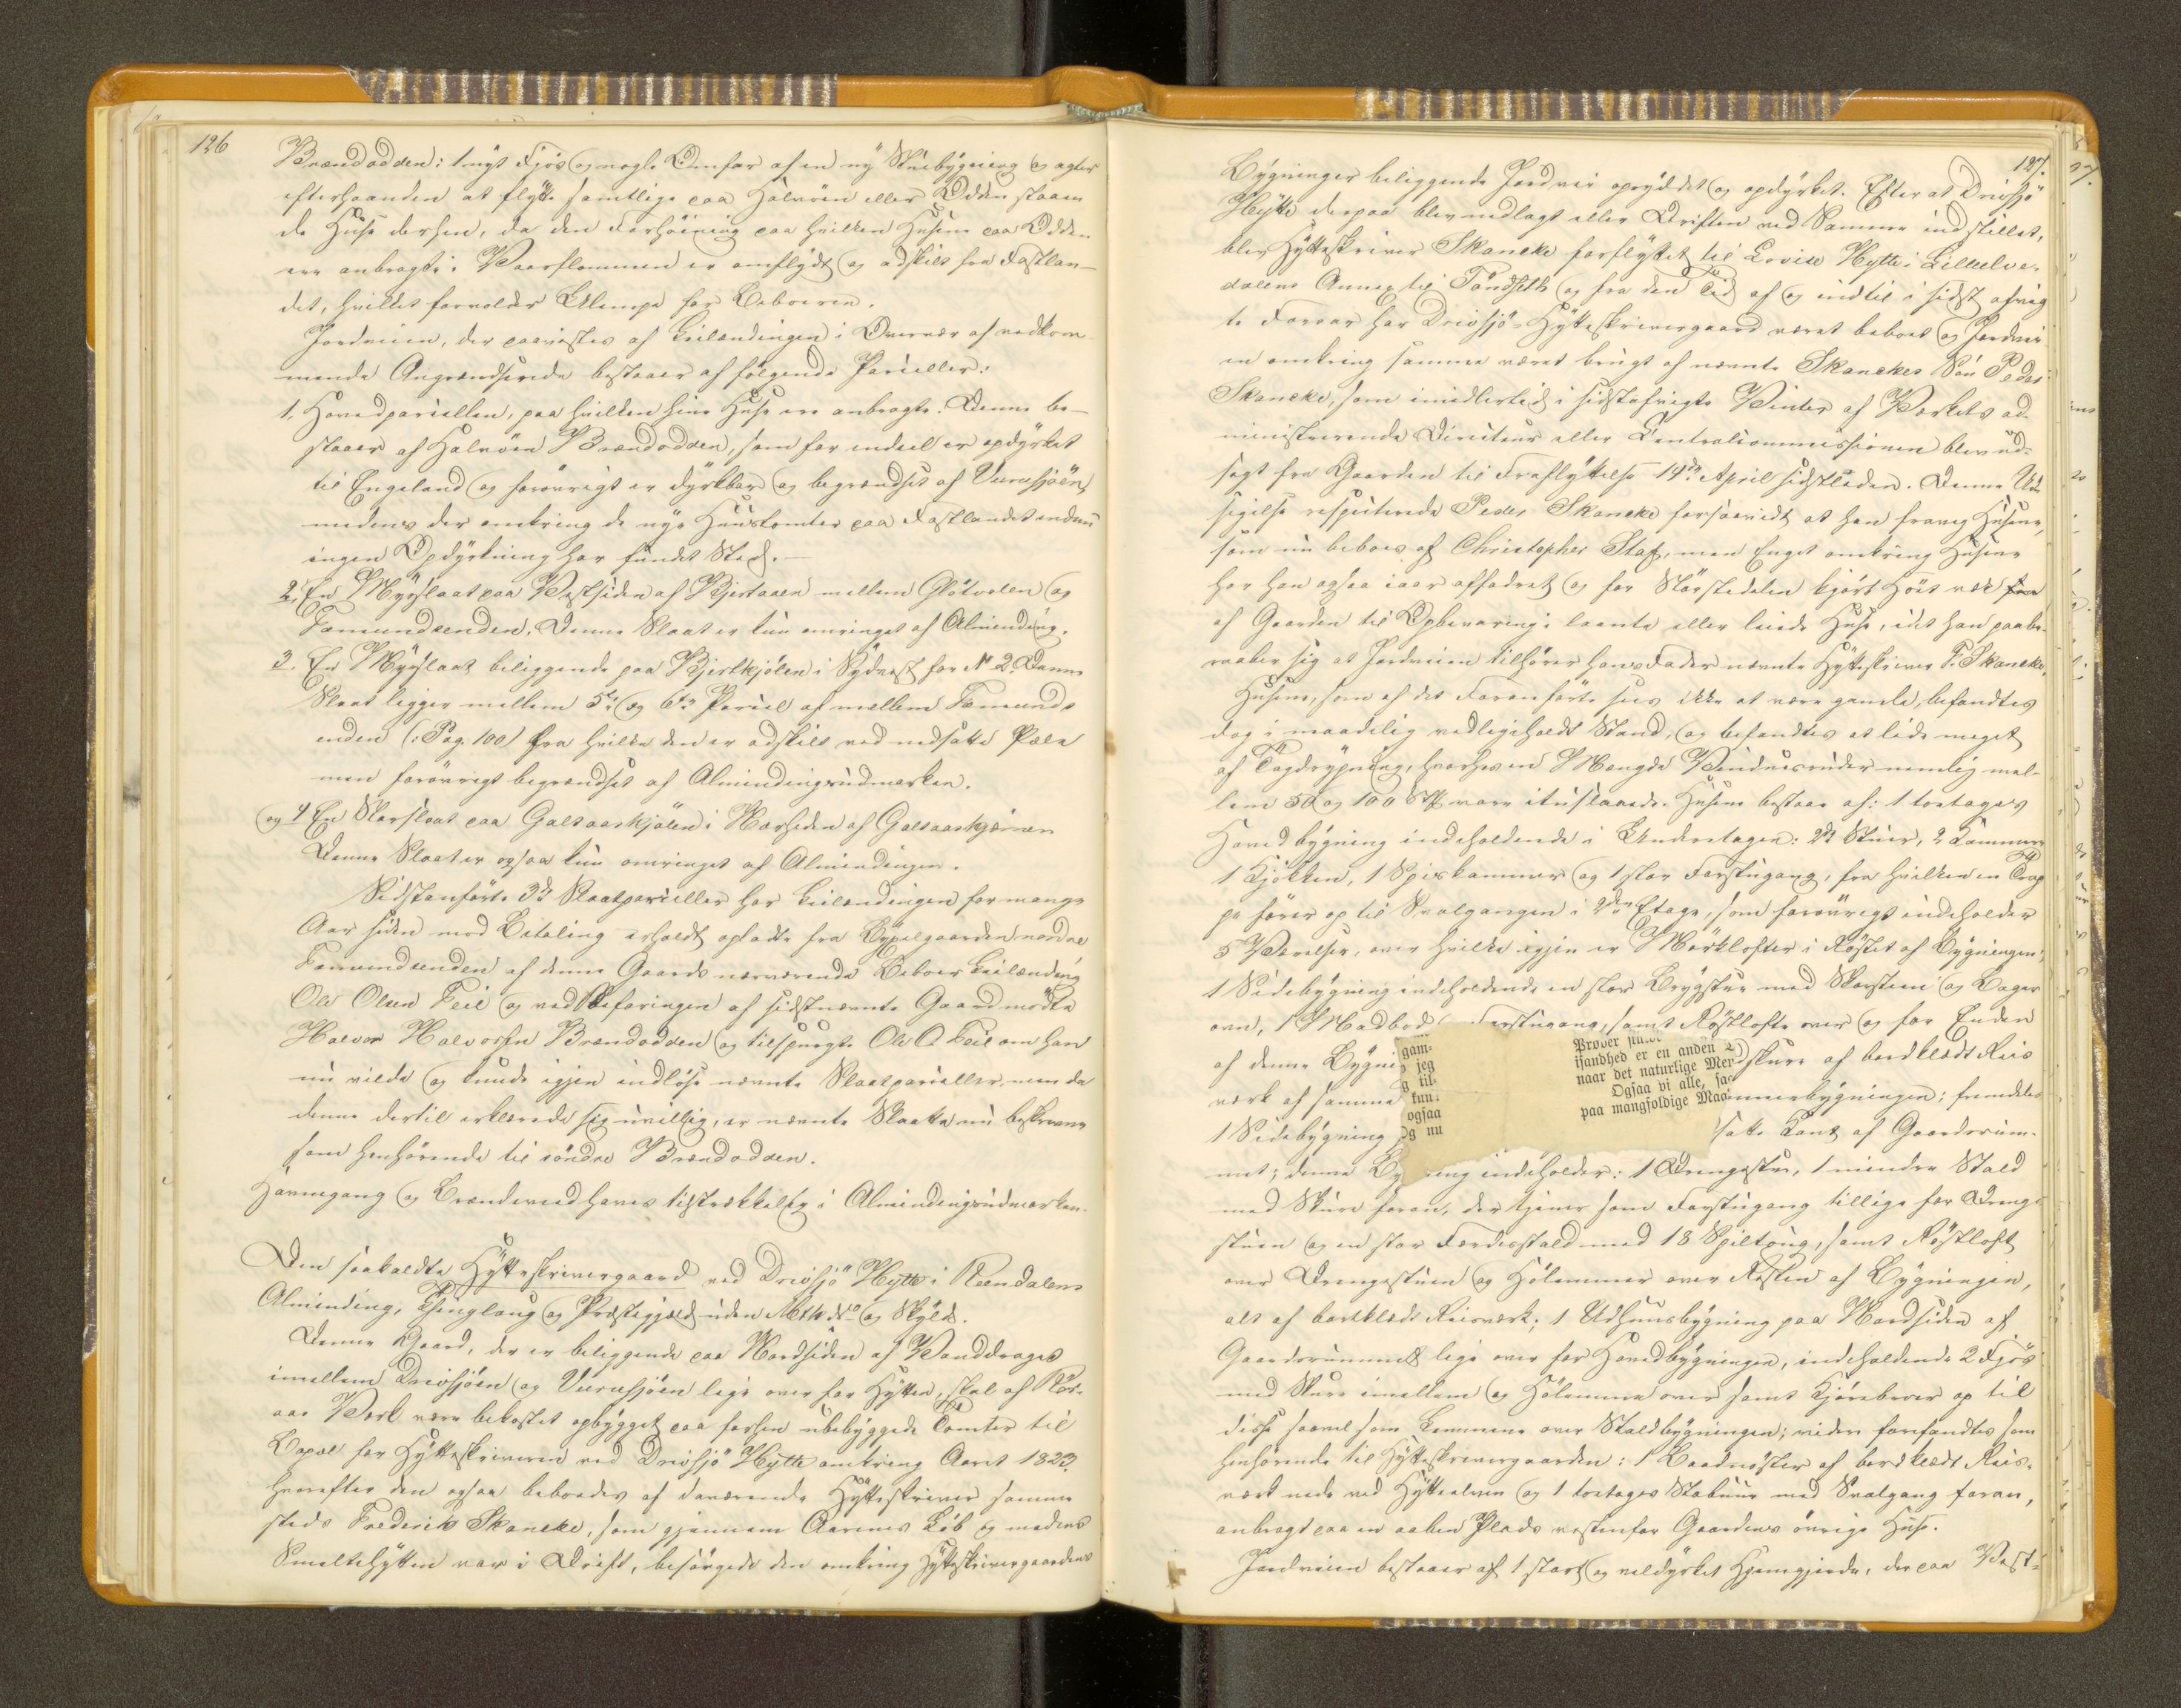 126
Brændodden: 1 nyt Fjøs og nogle Omfar af en ny Stuebygning og agter
efterhaanden at flytte samtlige paa Halvøen eller Odden staaen
de Huse derhen, da den Forhøining paa hvilken Husene paa Odden
ere anbragte i Vaarflommen er omflydt og adskilt fra Fastlan-
det, hvilket forvolder Ulempe for Beboeren.
Jordveien, der paavistes af Leilændingen i Overvær af vedkom-
mende Angrændserede bestaaer af følgende Parceller:
1, Hovedparcellen, paa hvilken hine Huse ere anbragte. Denne be-
staaer af Halvøen Brændodden, som for endeel er opdyrket
til Engeland og forøvrigt er dyrkbar og begrændset af Vurusjøen,
medens der omkring de nye Huustomter paa Fastlandet endnu
ingen Opdyrkning har fundet Sted.-
2, En Myrslaat paa Vestsiden af Bjertaaen mellem Gløtvolen og
Fæmundsenden. Denne Slaat er kun omringet af Almending.
3. En Myrslaat beliggende paa Bjertkjølen i Sydvest for No 2. Denne
Slaat ligger mellem 5te og 6te Parcel af mellem Fæmunds
enden (: Pag. 100) fra hvilke den er adskilt ved nedsatte Pæle
men forøvrigt begrændset af Almindingsudmarken.
og 4 En Starslaat paa Galtaaskjølen i Norsiden af Galtaaskjærnen
Denne Slaat er ogsaa kun omringet af Almindingen.
Sidstanførte 3de Slaatparceller har Leilændingen for mange
Aar siden mod Betaling erholdt opladte fra Bygselgaarden nordre
Fæmundsenden af denne Gaards nærværende Beboer Leilænding
Ole Olsen Feil og ved Befaringen af sidstnævnte Gaard mødte
Halvor Halvorsen Brændodden og tilspurgte Ole O. Feil om han
nu vilde og kunde igjen indløse nævnte Slaatparceller, men da
denne dertil erklærede sig uvillig, er nævnte Slaatte nu beskrevne
som henhørende til søndre Brændodden.
Havnegang og Brændeved haves tilstrækkelig i Almindingsudmarken.
Den saakaldte Hytteskrivergaard ved Drevsjø Hytte i Rendalens
Alminding, Thinglaug og Præstegjæld uden Mat. No og Skyld.
Denne Gaard, der er beliggende paa Nordsiden af Vanddraget
imellem Drevsjøen og Vurusjøen lige over for Hytten, skal af Rør-
aas Værk være bekostet opbygget paa forhen ubebyggede Tomter til
Bopæl for Hytteskriveren ved Drevsjø Hytte omkring Aaret 1823.
hvorefter den ogsaa beboedes af daværende Hytteskriver samme
steds Frederik Skancke, som gjennem Aarenes Løb og medens
Smeltehytten var i Drift, besørgede den omkring Hytteskrivergaardens
127.
Bygninger beliggende Jordvei opryddet og opdyrket. Efter at Drevsjø
Hytte derpaa blev nedlagt eller Driften ved Samme indstillet,
blev Hytteskriver Skancke forflyttet til Lovise Hytte i Lilleelve-
dalens Annex til Tøndseth og fra den Tid af og indtil i sidst afvig
te Foraar har Drevsjø-Hytteskrivergaard været beboet og Jordvei
en omkring samme været brugt af nævnte Skanckes Søn Peder
Skancke, som imidlertid i sidstafvigte Vinter af Værkets ad-
ministrerende Directeur eller Centralcommissionen blev ud-
sagt fra Gaarden til Fraflyttelse 14de April sidstleden. Denne Ud
sigelse respecterede Peder Skancke forsaavidt at han fraveg Husene,
som nu beboes af Christopher Staf, men Enget omkring Husene
har han ogsaa iaar afhøstet og for Størstedelen kjørt Høiet væk
af Gaarden til Opbevaring i laante eller leiede Huse, idet han paabe-
raaber sig at Jordveien tilhører hans Fader nævnte Hytteskriver F. Skancke.
Husene, som af det Foranførte sees ikke at være gamle, befandtes
dog i maadelig vedligeholdt Stand, og befandtes at lide meget
af Tagdrypning, hvorhos en Mængde Vinduesruder nemlig mel-
lem 50 og 100 Stk vare ituslaaede. Husene bestaae af: 1 toetages
Hovedbygning indeholdende i Underetagen: 2de Stuer, 2 Kammere
1 Kjøkken, 1 Spiskammer og 1 stor Forstugang, fra hvilken en Trap
pe fører op til Svalgangen i 2den Etage, som forøvrigt indeholder
5 Værelser, over hvilke igjen er Mørkloftet i Røstet af Bygningen;
1 Sidebygning indeholdende en stor Brygstue med Skorsteen og Bager
ovn, 1 Madbod Forstugang, samt Røstloft over og for Enden
af denne Bygni dskuur af bordklædt Reis
værk af samme immerbygningen; fremdeles
1 Sidebygning satte Kant af Gaardsrum-
met; denne By ning indeholder: 1 Drengestue, 1 mindre Stald
med Skuur foran, der tjener som Forstugang tillige for Drenge
stuen og en stor Færdesstald med 18 Spiltoug, samt Røstloft
over Drengestuen og Hølemmer over Resten af Bygningen,
alt af bordklædt Reisværk; 1 Udhuusbygning paa Nordsiden af
Gaardsrummet lige over for Hovedbygningen, indeholdende 2 Fjøs
med Skuur imellem og Hølemme over samt Kjørebroer op til
disse saavel som Lemmene over Staldbygningen; viden forefandtes som
henhørende til Hytteskrivergaarden: 1 Baadnøster af bordklædt Reis-
værk nede ved Hytteelven og 1 toetages Stabuur med Svalgang foran,
anbragt paa en aaben Plads vestenfor Gaardens øvrige Huse.
Jordveien bestaaer af 1 stort og veldyrket Hjemgjerde, der paa Vest-
gam-
jeg
g til-
kun
ogsaa
Og nu
Prøver
isandhed er en anden
naar det naturlige Mer
Ogsaa vi alle, sa
paa mangfoldige Maa